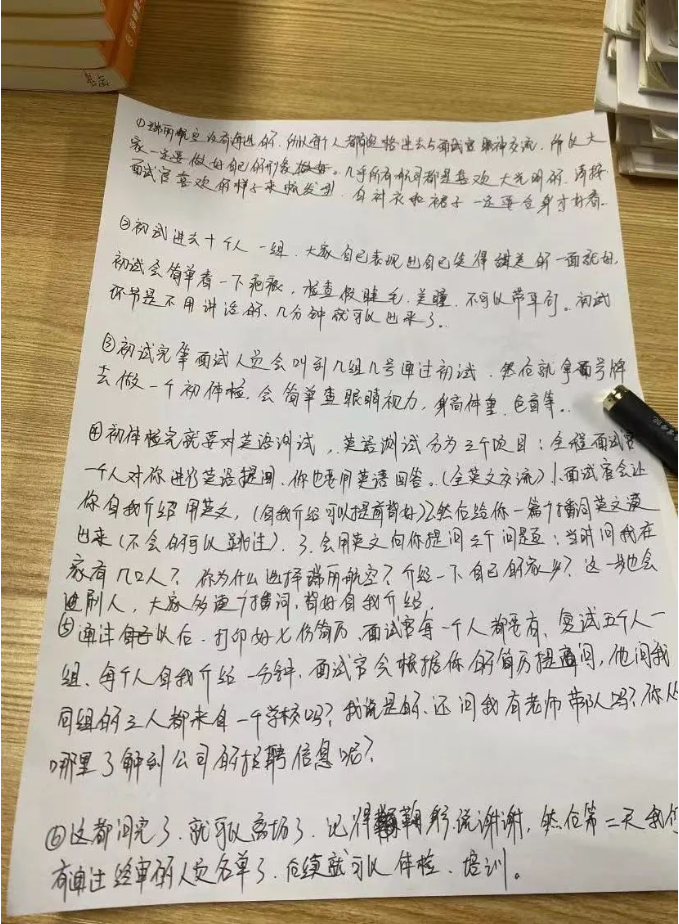 ①瑞丽航空没有海选的,所以每个人都有资格进去与面试官眼神交流,所以大
家一定要做好自己的形象。几乎所有航司都是喜欢大光明的,请按
面试官喜欢的样子来梳发型,白衬衣和裙子一定要合身才好看。
②初试进去十个人一组,大家自己表现出自己笑得甜美的一面就好,
初试会简单看一下疤痕,检查假睫毛,美瞳,不可以带耳钉。初试
环节是不用讲话的,几分钟就可以出来了。
③初试完等面试人员会叫到几组几号通过初试,然后就拿号牌
去做一个初体检,会简单查眼睛视力,身高体重,色盲等。
④初体检完就要对英语测试,英语测试分为三个项目:全程面试官
一个人对你进行英语提问,你也要用英语回答。(全英文交流)1.面试官会让
你自我介绍用英文,(自我介绍可以提前背好)2.然后给你一篇广播词英文读
出来(不会的可以跳过),3.会用英文向你提问三个问题:当时问我在
家有几口人?你为什么选择瑞丽航空?介绍一下自己的家乡?这一步也会
进刷人,大家多读广播词,背好自我介绍,
⑤通过以后,打印好七份简历,面试官每一个人都要有,复试五个人一
组,每个人自我介绍一分钟,面试官会根据你的简历提问,他问我
同组的三人都来自一个学校吗?我说是的,还问我有老师带队吗?你从
哪里了解到公司的招聘信息呢?
⑥这都问完了,就可以离场了,记得鞠躬说谢谢,然后第二天我们
有通过终审的人员名单了,后续就可以体检、培训。